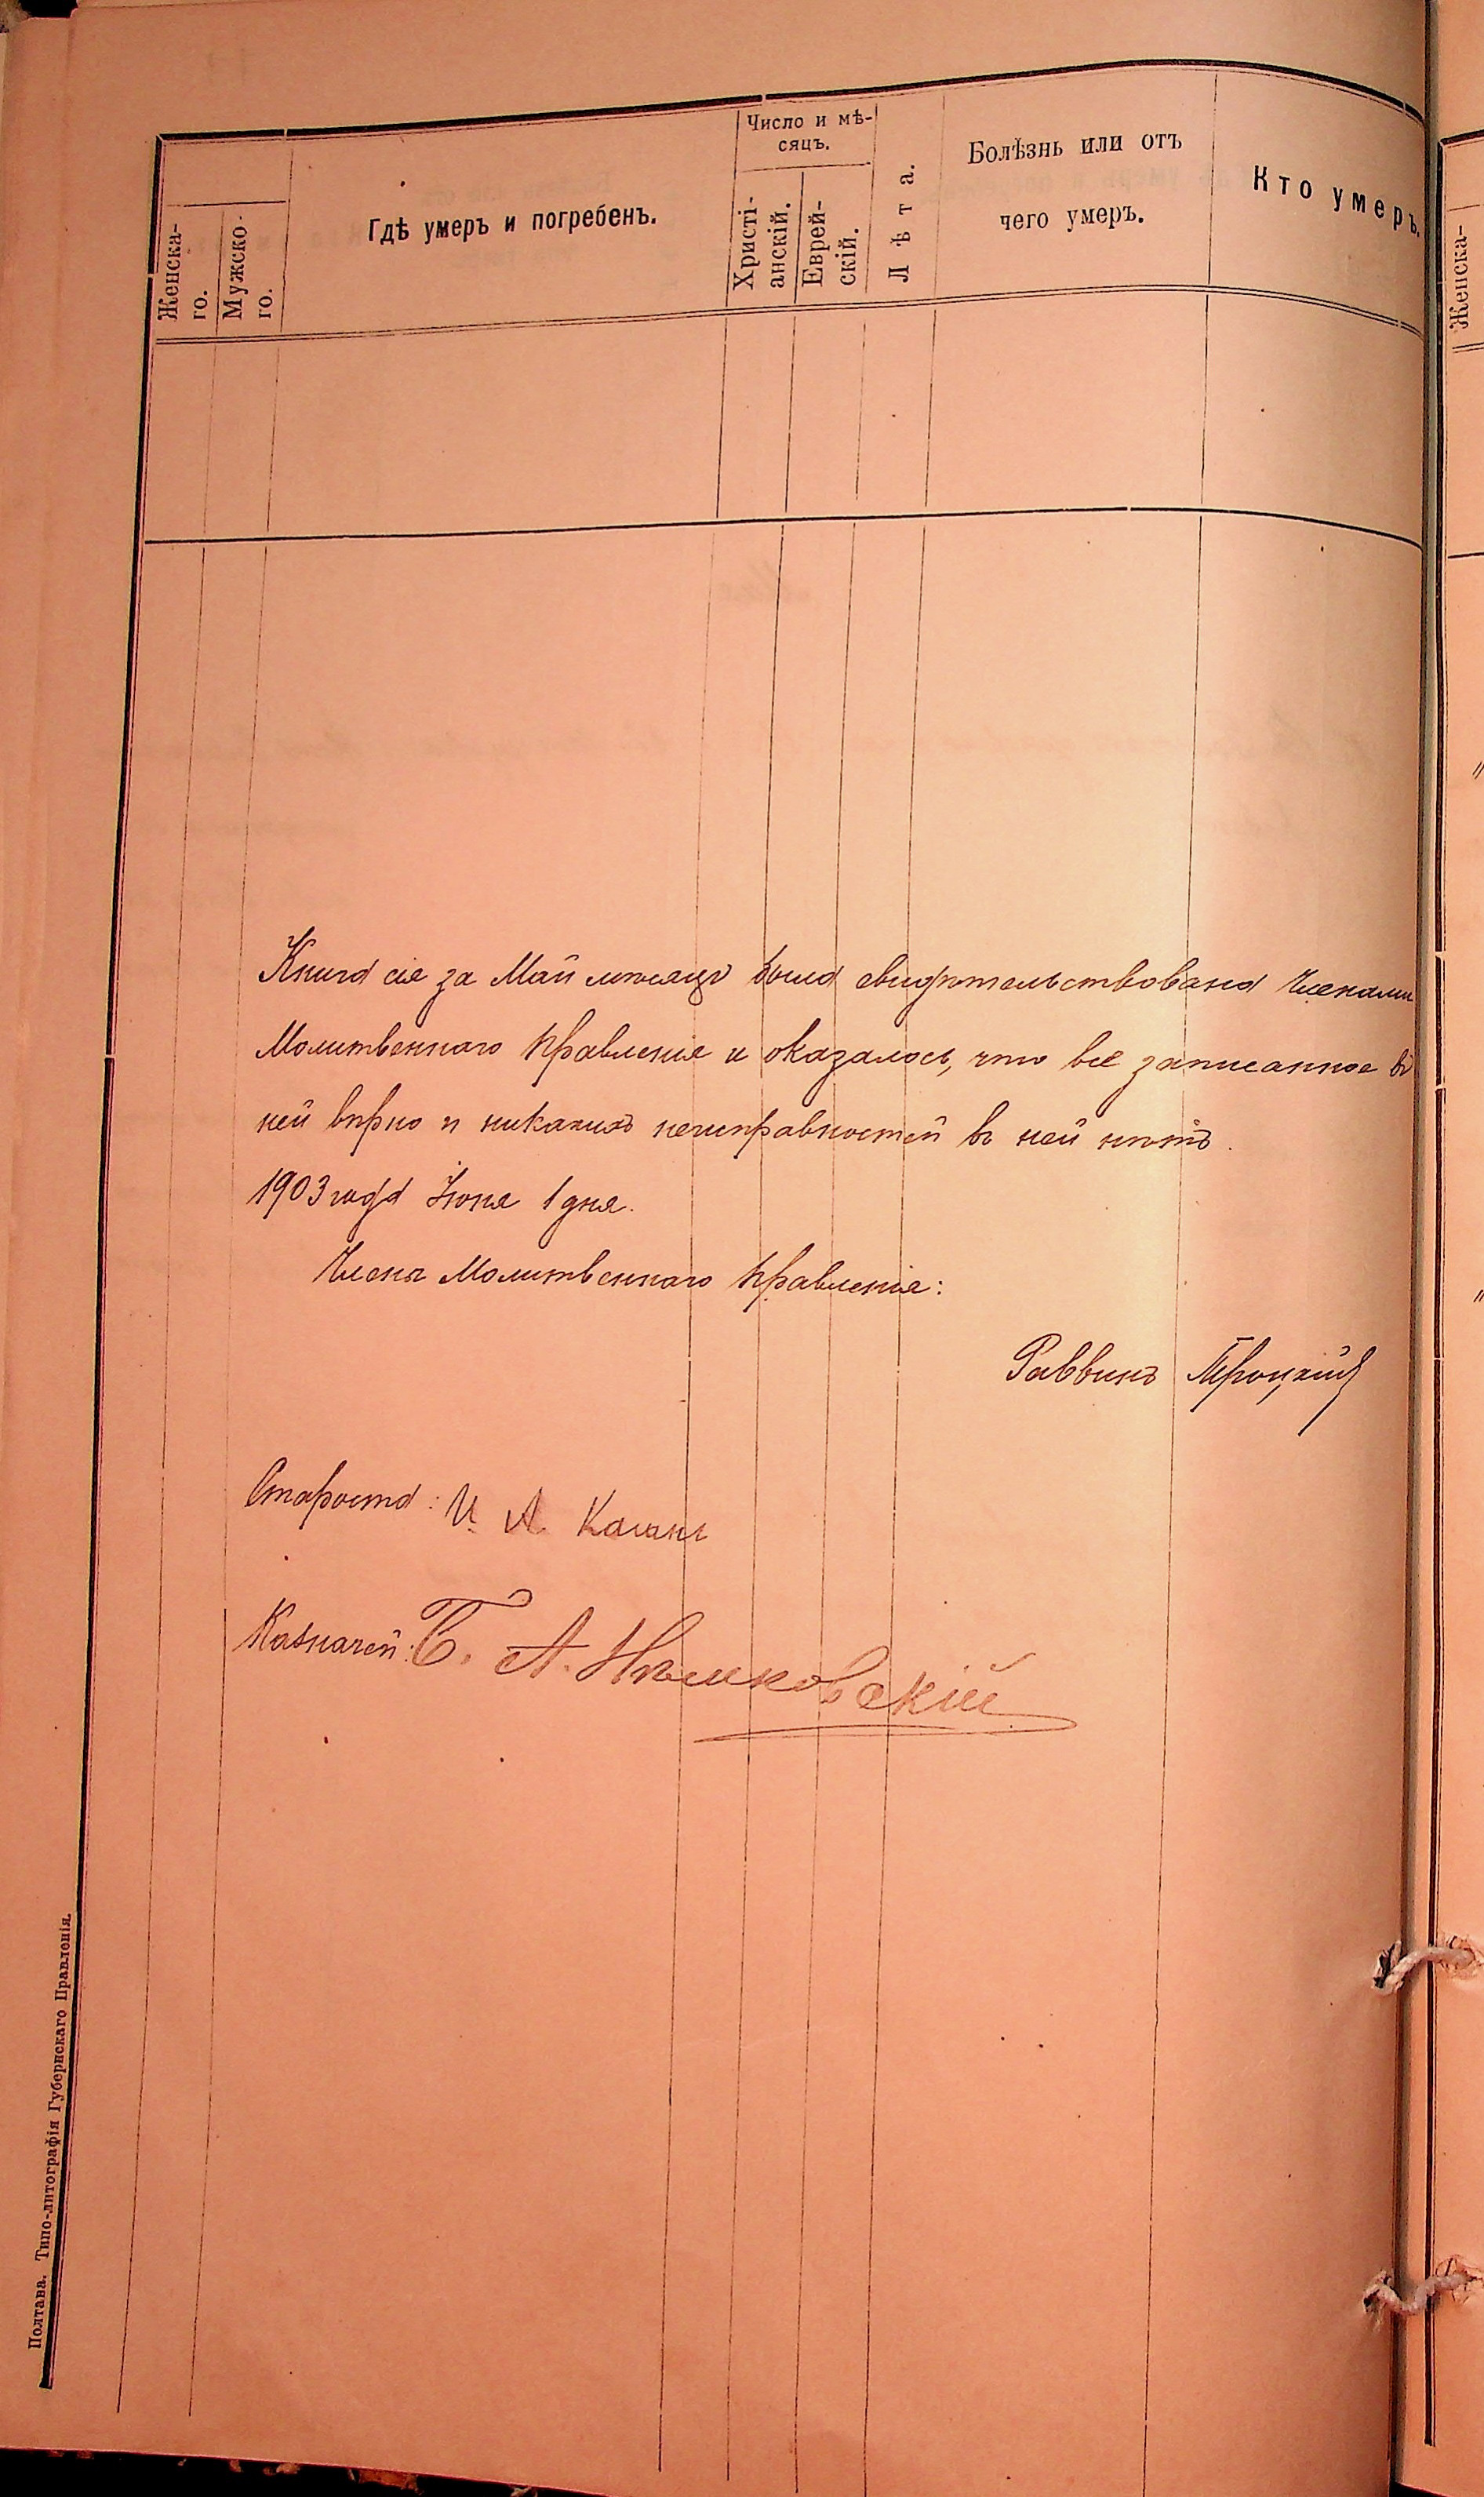 Женска-
го.
Мужско-
го.
Гдѣ умеръ и погребенъ.
Число и мѣ-
сяцъ.
Христі-
анскій.
Еврей-
скій.
Лѣта.
Болѣзнь или отъ
чего умеръ.
Кто умеръ.
Женска-
Книга сія за Май мѣсяцъ была свидѣтельствована Членами
Молитвеннаго Правленія и оказалось, что все записанное въ
ней вѣрно и никакихъ неисправностей въ ней нѣтъ.
1903 года Іюня 1 дня.
Члены Молитвеннаго Правленія:
Раввинъ Троцкій
Староста: И. А. Каганъ
Казначей: Б. А. Нѣмковскій
Полтава. Типо-литографія Губернскаго Правленія.